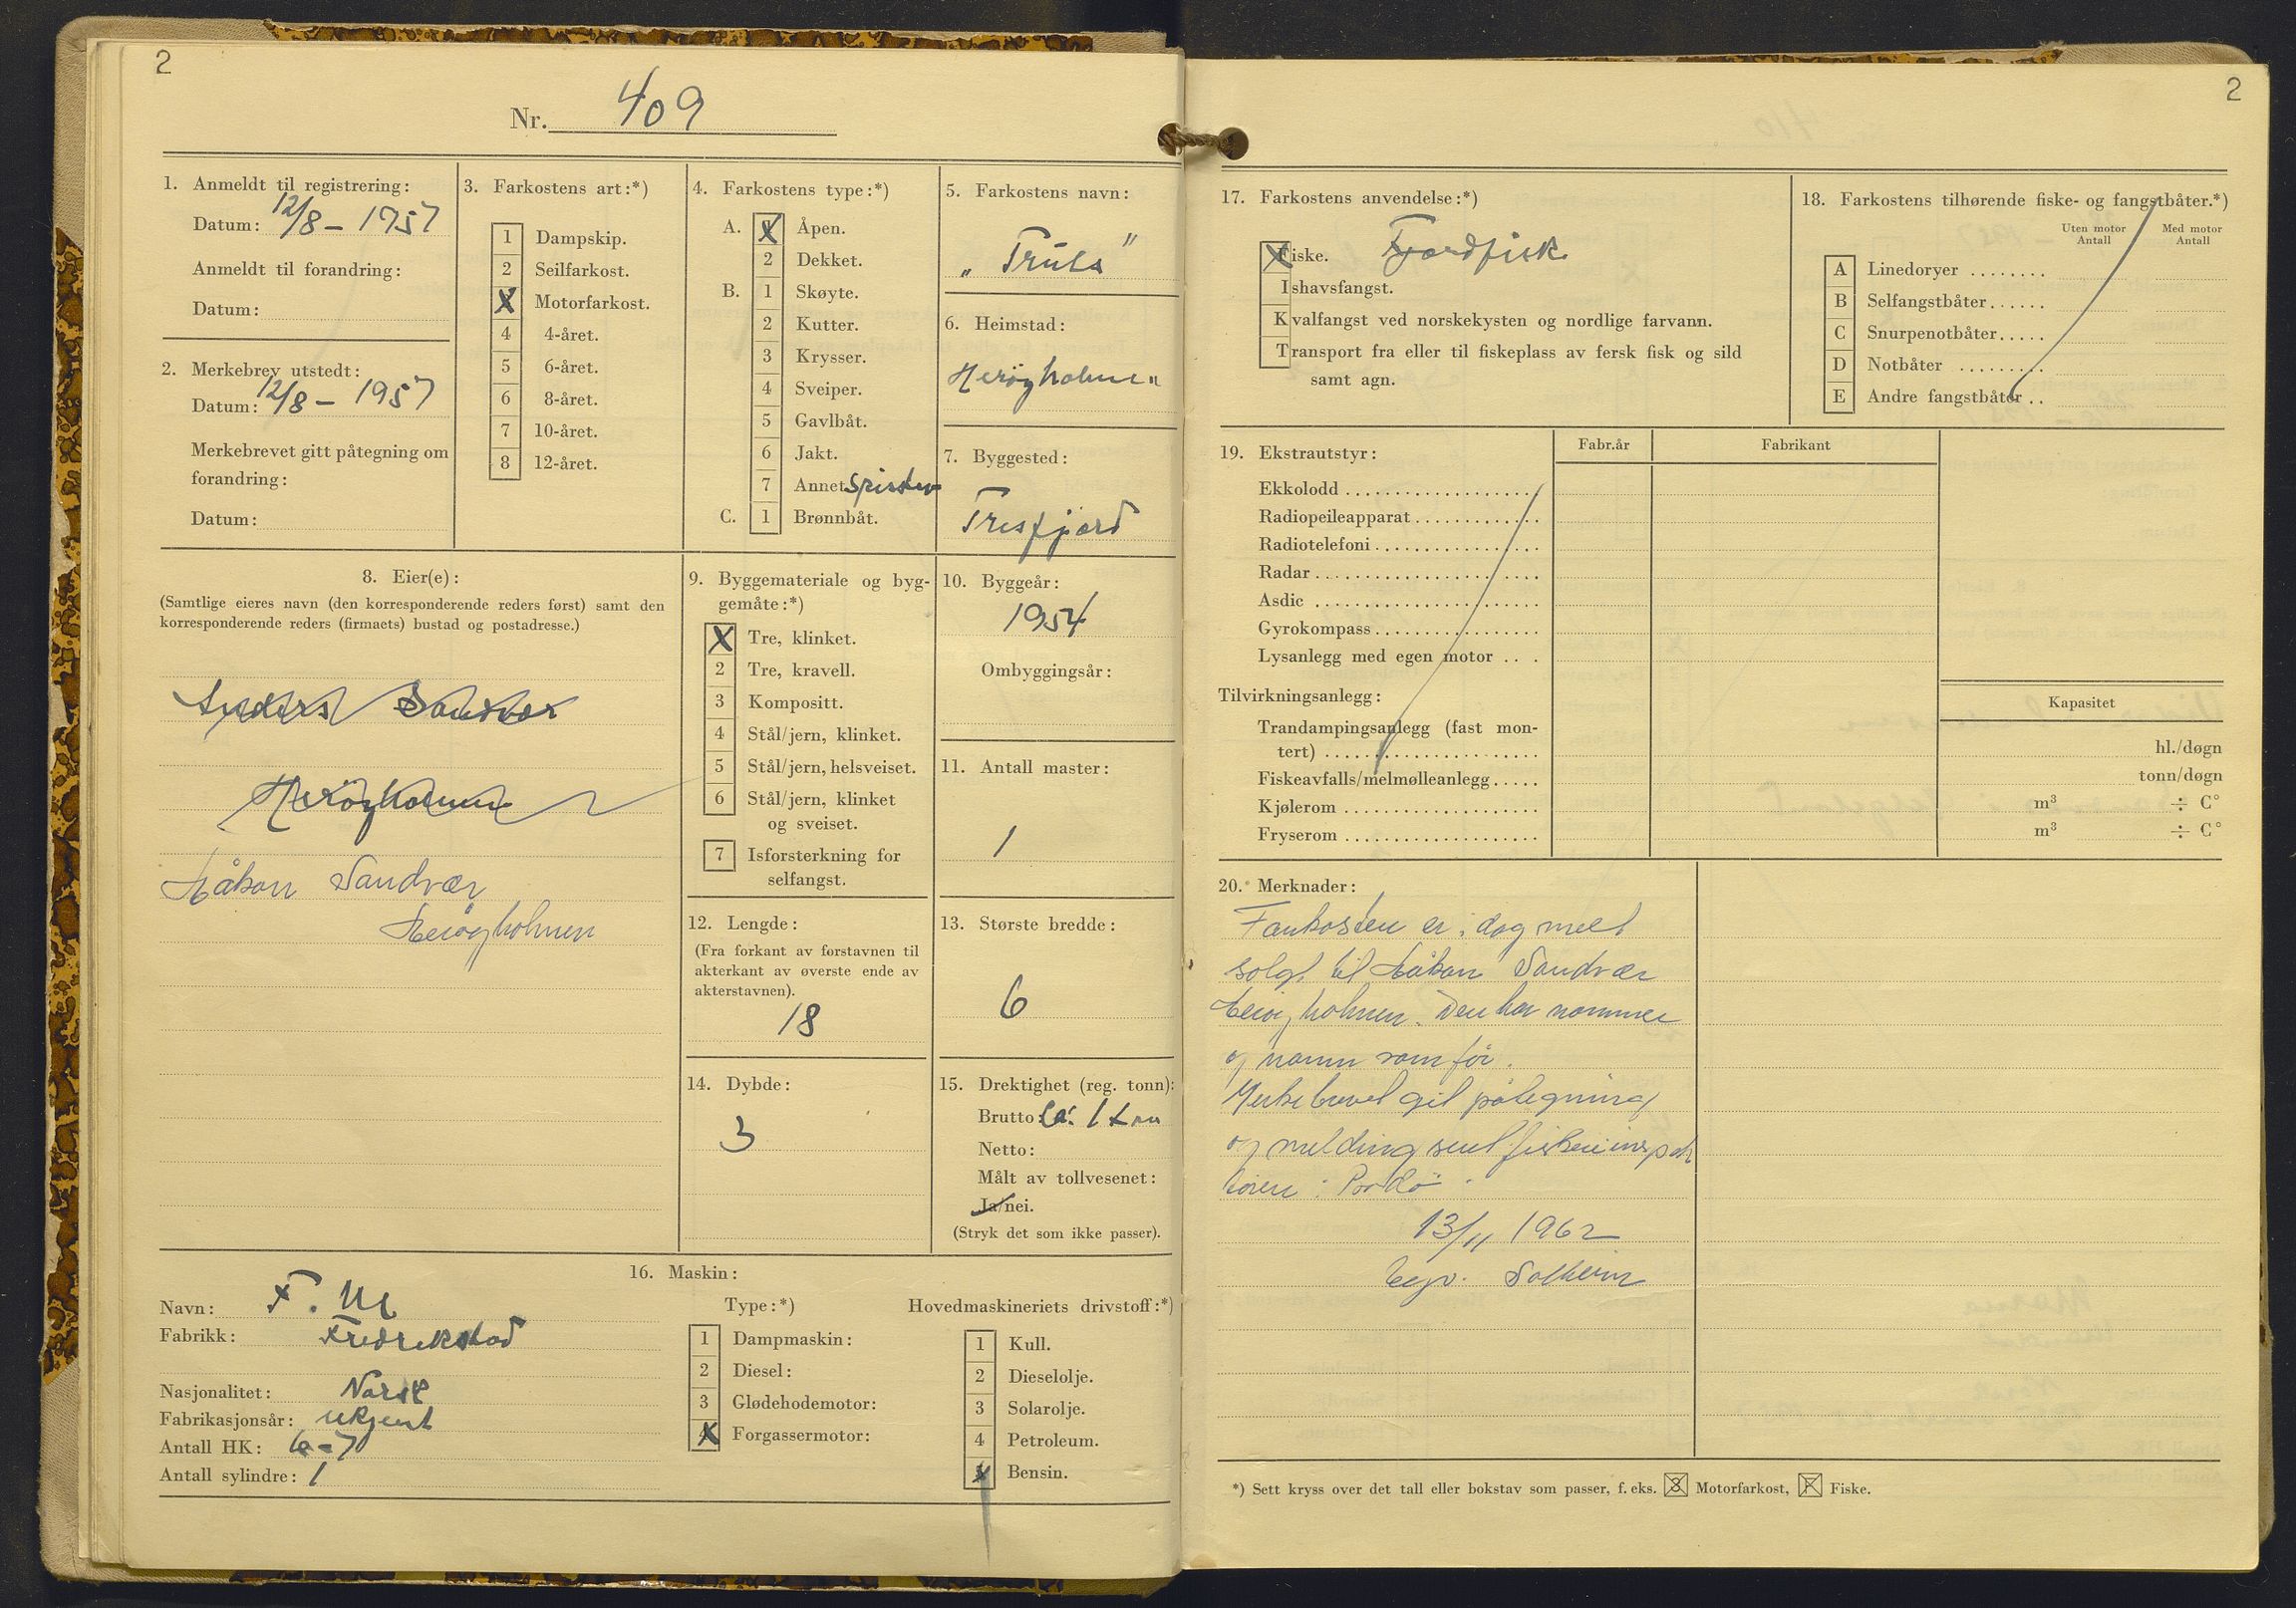 2
Nr. 409
1. Anmeldt til registrering:
Datum: 12/8 - 1957
Anmeldt til forandring:
Datum:
2. Merkebrev utstedt:
Datum: 12/8 - 1957
Merkebrevet gitt påtegning om
forandring:
Datum:
3. Farkostens art:*)
1 Dampskip.
2 Seilfarkost.
X Motorfarkost.
4 4-året.
5 6-året.
6 8-året.
7 10-året.
8 12-året.
4. Farkostens type:*)
A. X Åpen.
2 Dekket.
B. 1 Skøyte.
2 Kutter.
3 Krysser.
4 Sveiper.
5 Gavlbåt.
6 Jakt.
7 Annet
C. 1 Brønnbåt.
5. Farkostens navn:
„Truls"
6. Heimstad:
Herøyholmen
7. Byggested:
Tresfjord
8. Eier(e):
(Samtlige eieres navn (den korresponderende reders først) samt den
korresponderende reders (firmaets) bustad og postadresse.)
Anders Sandvær
Herøyholmen
Håkon Sandvær
Herøyholmen
9. Byggemateriale og byg-
gemåte:*)
X Tre, klinket.
2 Tre, kravell.
3 Kompositt.
4 Stål/jern, klinket.
5 Stål/jern, helsveiset.
6 Stål/jern, klinket
og sveiset.
7 Isforsterkning for
selfangst.
10. Byggeår:
1954
Ombyggingsår:
11. Antall master:
1
12. Lengde:
(Fra forkant av førstavnen til
akterkant av øverste ende av
akterstavnen).
18
13. Største bredde:
6
14. Dybde:
3
15. Drektighet (reg. tonn):
Brutto: Ca. 1 tonn
Netto:
Målt av tollvesenet:
Ja/nei.
(Stryk det som ikke passer).
16. Maskin:
Navn: F. M
Fabrikk: Fredrikstad
Nasjonalitet: Norsk
Fabrikasjonsår: ukjent
Antall HK: 6-7
Antall sylindre: 1
Type:*)
1 Dampmaskin:
2 Diesel:
3 Glødehodemotor:
X Forgassermotor:
Hovedmaskineriets drivstoff:*)
1 Kull.
2 Dieselolje.
3 Solarolje.
4 Petroleum.
X Bensin.
2
17. Farkostens anvendelse:*)
Fiske. Fjordfisk
Ishavsfangst.
Kvalfangst ved norskekysten og nordlige farvann.
Transport fra eller til fiskeplass av fersk fisk og sild
samt agn.
18. Farkostens tilhørende fiske- og fangstbåter.*)
Uten motor Antall
Med motor Antall
A Linedoryer
B Selfangstbåter
C Snurpenotbåter
D Notbåter
E Andre fangstbåter
19. Ekstrautstyr:
Fabr.år
Fabrikant
Ekkolodd
Radiopeileapparat
Radiotelefoni
Radar
Asdic
Gyrokompass
Lysanlegg med egen motor
Tilvirkningsanlegg:
Kapasitet
Trandampingsanlegg (fast mon-
tert) hl./døgn
Fiskeavfalls/melmølleanlegg tonn/døgn
Kjølerom m³ ÷ C°
Fryserom m³ ÷ C°
20. Merknader:
Farkosten er i dag melt
solgt til Håkon Sandvær
Herøyholmen. Den har nommer
og namn som før.
Merkebrevet git påtegning
og melding sent fiskeriinspek
tøren i Bodø.
13/11 1962
Solheim
*) Sett kryss over det tall eller bokstav som passer, f. eks. 3 Motorfarkost, F Fiske.